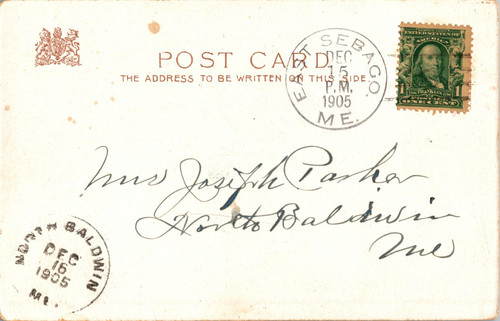 POST CARD
THE ADDRESS TO BE WRITTEN ON THIS SIDE
EAST SEBAGO,
DEC
15
P.M.
1905
ME.
1
1
ONE CENT
Mrs Joseph Parker
North Baldwin
Me
NORTH BALDWIN
DEC
16
1905
ME.